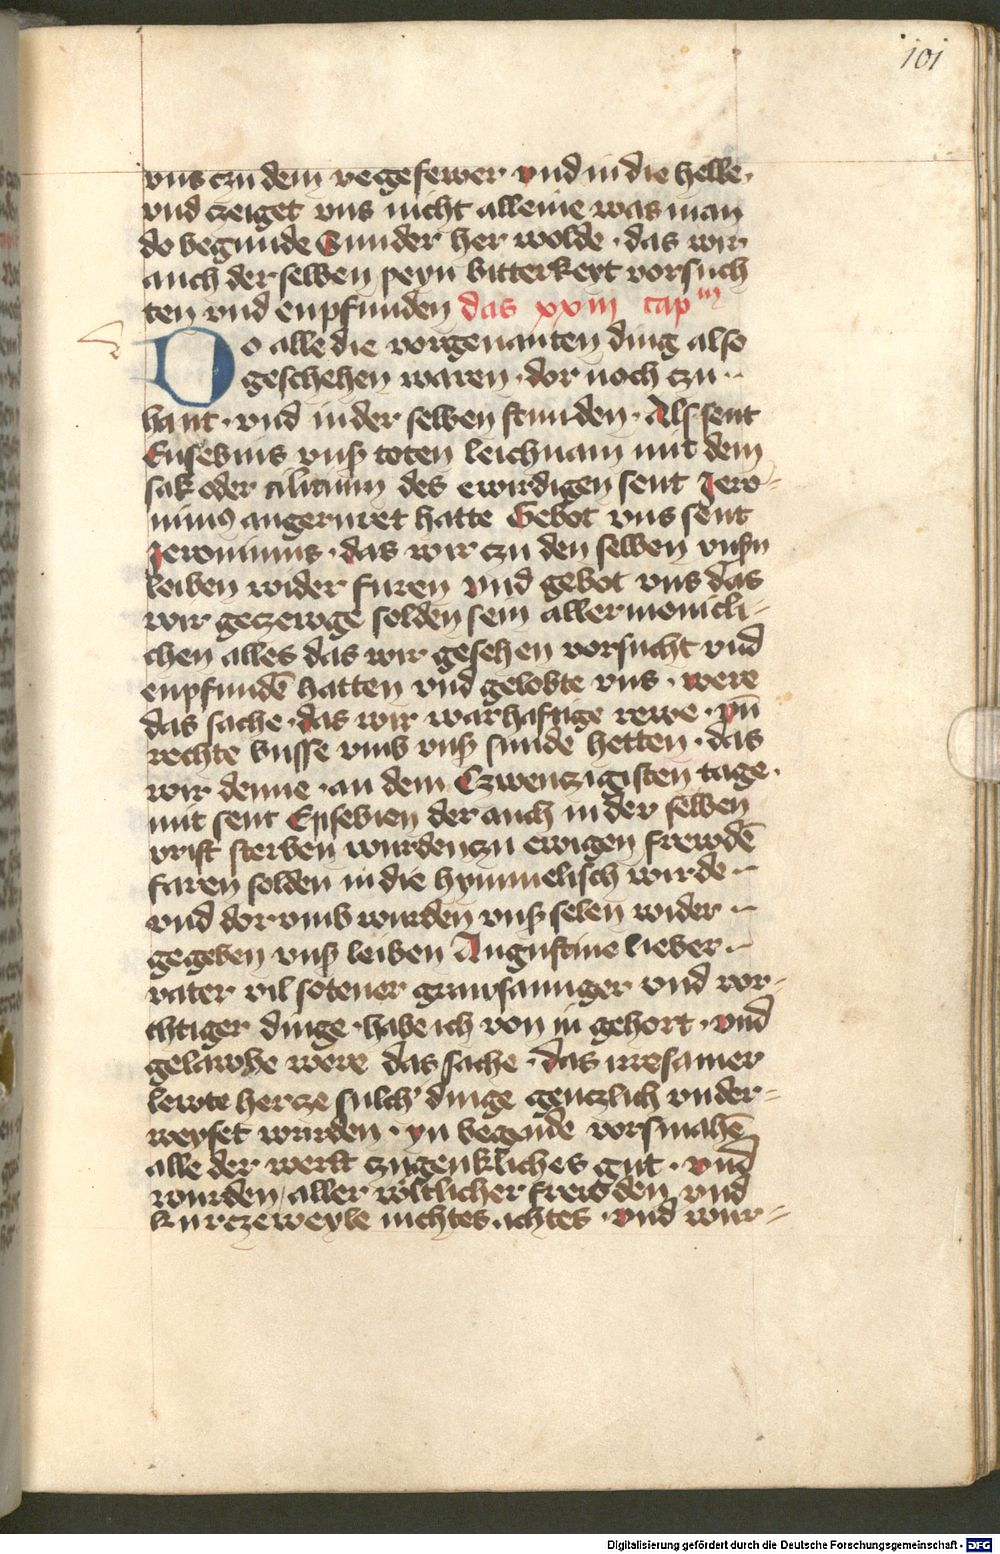 101
vns czu dem vegefewer vnd in die helle.
vnd czeiget vns nicht alleine was man
do begunde Sunder her wolde · das wir
auch der selben peyn bitterkeyt vorsuch
ten vnd enpfunden das xxiii capm
Do alle die vorgenanten ding also
geschehen waren · dor noch czu ··
hant · vnd in der selben stunden · Als sent
Eusebius vnsß toten leichnam mit dem
sak oder cilicium des erwirdigen sent Jero-
nimus angeruret hatte Gebot vns sent
Jeronimus · das wir czu den selben vnßn
leiben wider furen vnd gebot vns das
wir geczewge solden sein aller menicli-
chen alles das wir gesehen vorsucht vnd
enpfundē hatten vnd gelobte vns · were
das sache · das wir warhaftige rewe · vn̄
rechte busse vmb vnß sunde hetten · das
wir denne · an dem Czwenczigisten tage ·
mit sent Eusebien der auch in der selben
vrist sterben wurden czu ewigen frewdē
faren solden in die hymmelisch wirde ··
vnd dor vmb wurden vnß selen wider ··
gegeben vnß leiben Augustine lieber ··
vater vil sotener grawsamiger vnd vor-
chtiger dinge · habe ich von in gehort · vnd
gelawbe were das sache · das irresamer
lewte hercze sulch' dinge genczlich vnder-
weyset wurden · yn begende vorsmahē
alle der werlt czugenkliches gut · vnd
wurden aller wltlicher frewden vnd
kurczeweyle nichtes ichtes · vnd wur-
Digitalisierung gefördert durch die Deutsche Forschungsgemeinschaft - DFG